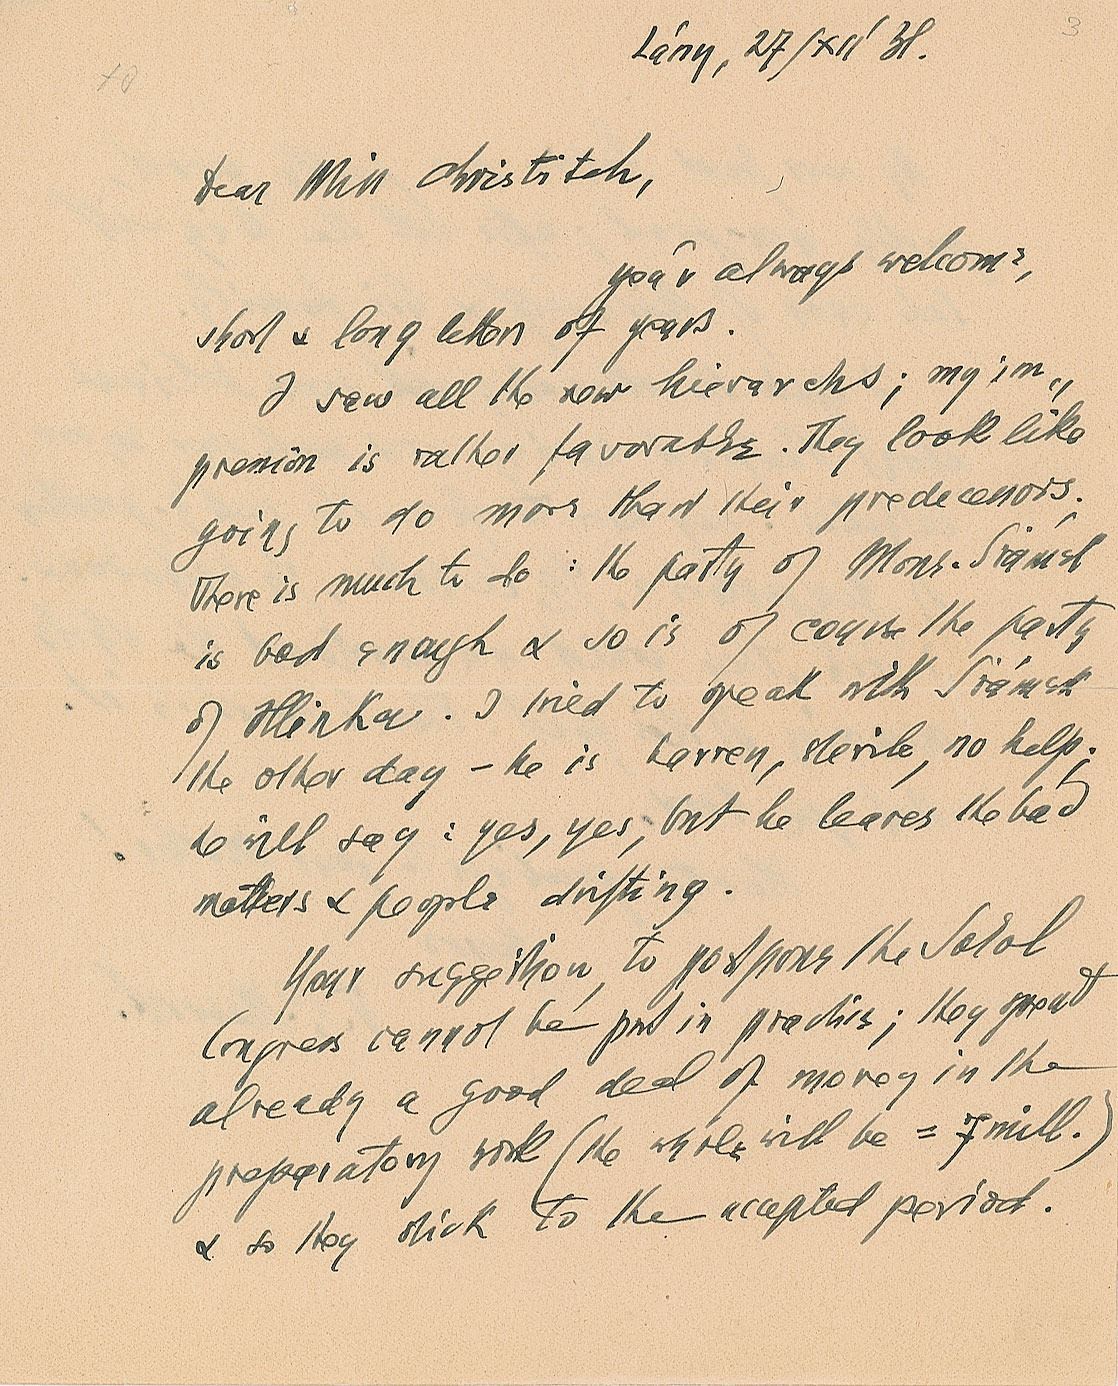 3
Lány, 27/XII 31.
Dear Miss Christitch,
you'r always welcome,
short & long letters of yours.
I saw all the new hierarchs; my im„
pression is rather favorable. They look like
going to do more than their predecessors.
There is much to do: the party of Mons. Šrámek
is bad enough & so is of course the party
of Hlinka. I tried to speak with Šrámek
the other day – he is barren, sterile, no help;
he will say: yes, yes, but he leaves the bad
matters & people drifting.
Your suggestion, to postpone the Sokol
Congress cannot be put in practise; they spent
already a good deal of money in the
preparatory work (the whole will be = 7 mill.)
& so they stick to the accepted period.